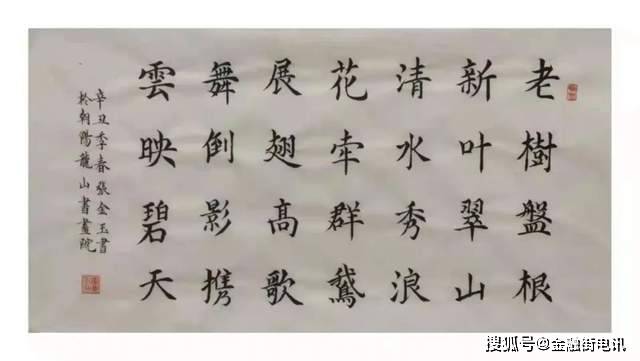 老樹盤根
新叶翠山
清水秀浪
花牵群鵞
展翅高歌
舞倒影携
雲映碧天
辛丑季春張金玉書
於朝陽龍山書畫院
搜狐号@金融街电讯